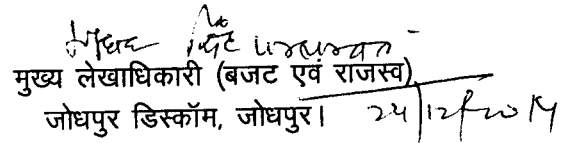 सिंह
मुख्य लेखाधिकारी (बजट एवं राजस्व)
जोधपुर डिस्कॉम, जोधपुर। 24/12/2014